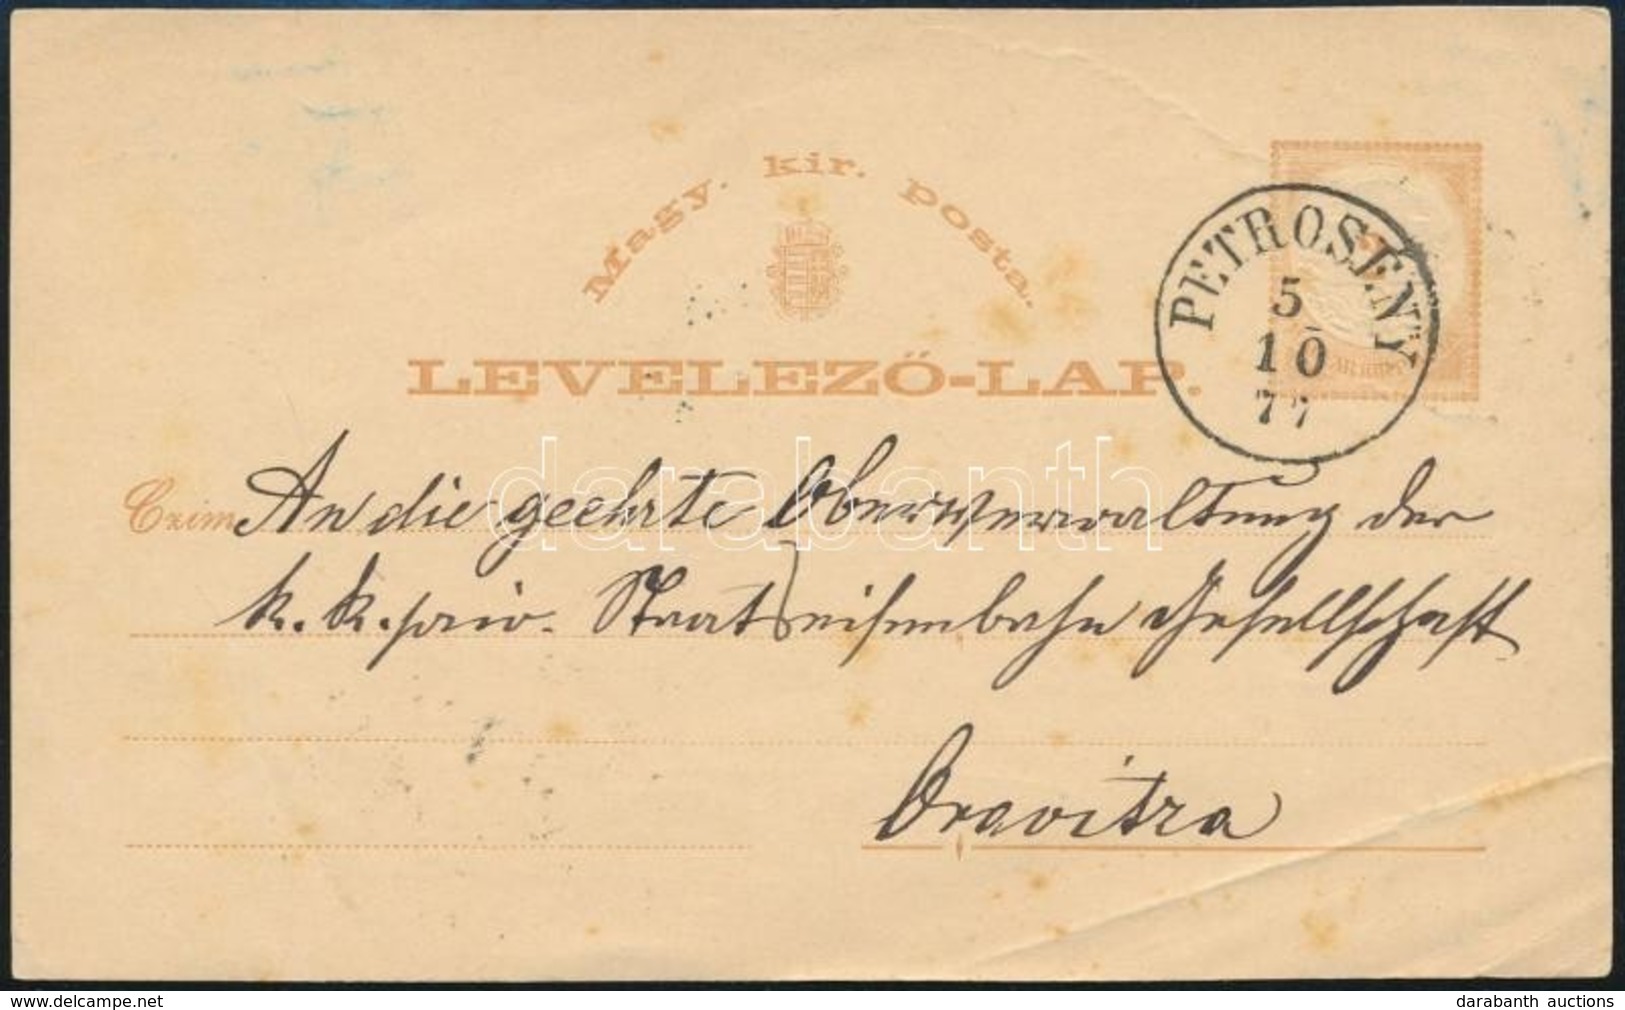 Magy. kir. posta.
LEVELEZŐ-LAP.
PETROSENY
5
10
77
Czim An die geehrte Oberverwaltung der
k. k. priv. Staatseisenbahn Gesellschaft
Oravitza
darabanth
darabanth auctions